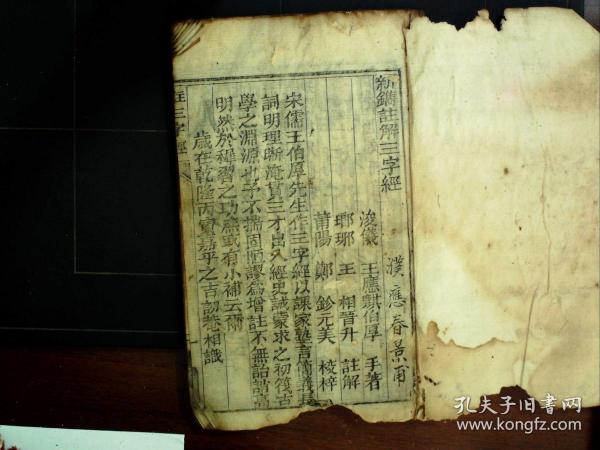 新鐫註解三字經
浚儀 王應麒伯厚 手著
瑯琊 王 相晉升 註解
莆陽 鄭 鉁元美 校梓
濮應春景甫
宋儒王伯厚先生作三字經以課家塾言簡義長
詞明理晰淹貫三才出入經史誠蒙求之初筏古
學之淵源也予不揣固陋謬為增註不無詒誚高
明然於穉習之功庶或有小補云爾
歲在乾隆丙寅嘉平之吉訒菴相識
註三字經
孔夫子旧书网
www.kongfz.com